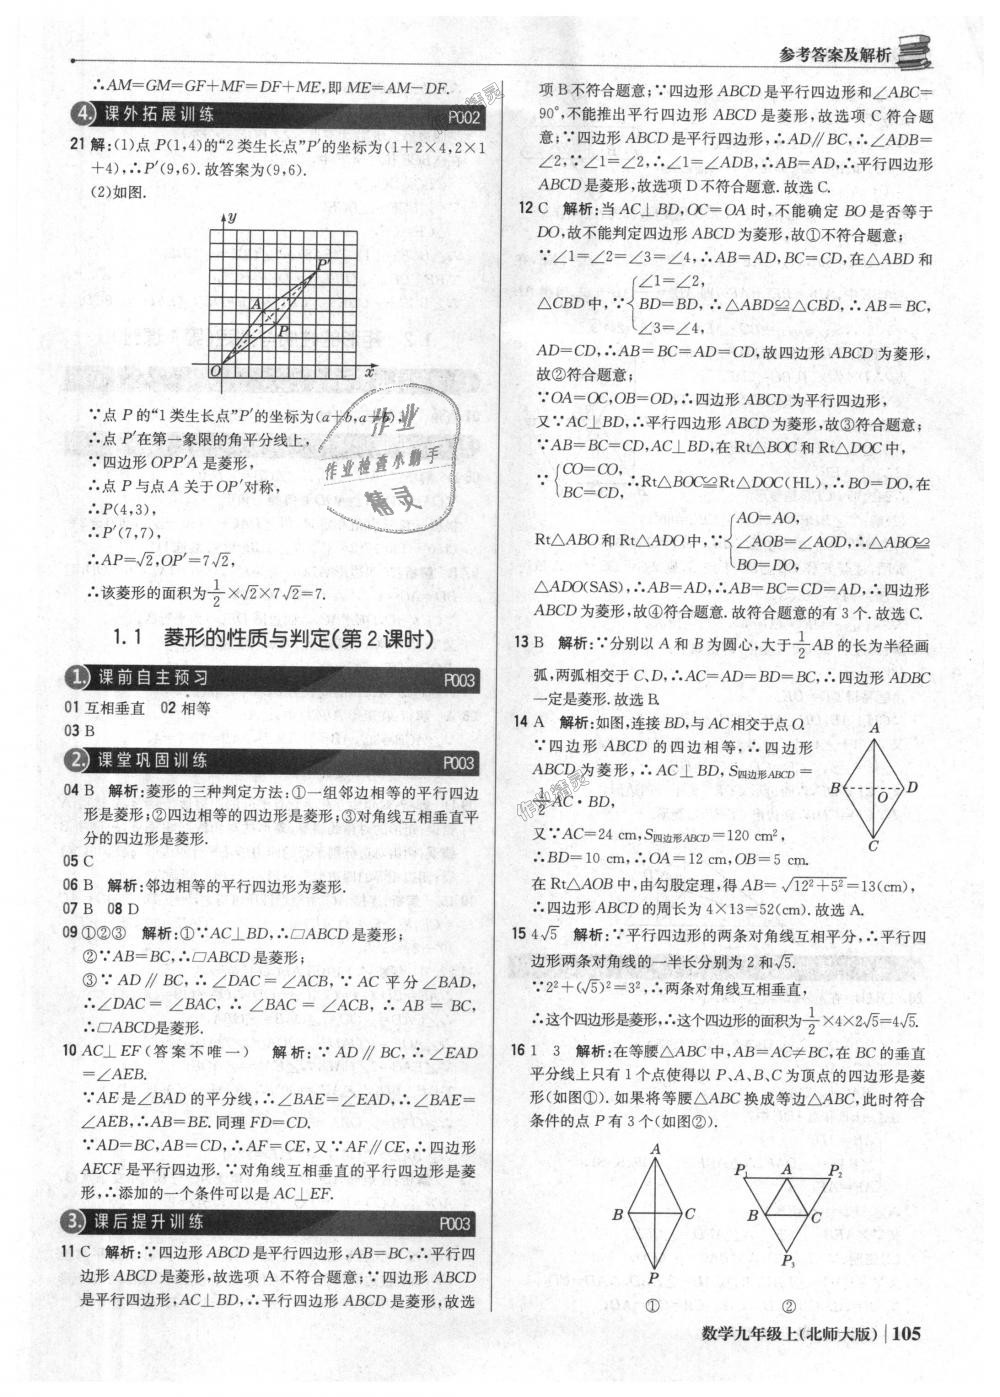 参考答案及解析
∴AM=GM=GF+MF=DF+ME,即 ME=AM-DF.
4. 课外拓展训练 P002
21 解:(1)点 P(1,4)的“2类生长点”P′的坐标为(1+2×4,2×1
+4),∴P′(9,6).故答案为(9,6).
(2)如图.
y
P′
A
P
O
x
∵点 P 的“1类生长点”P′的坐标为(a+b,a+b),
∴点 P′在第一象限的角平分线上,
∵四边形 OPP′A 是菱形,
∴点 P 与点 A 关于 OP′对称,
∴P(4,3),
∴P′(7,7),
∴AP=√2,OP′=7√2,
∴该菱形的面积为1/2×√2×7√2=7.
作业
作业检查小助手
精灵
1.1 菱形的性质与判定(第2课时)
1. 课前自主预习 P003
01 互相垂直 02 相等
03 B
2. 课堂巩固训练 P003
04 B 解析:菱形的三种判定方法:①一组邻边相等的平行四边
形是菱形;②四边相等的四边形是菱形;③对角线互相垂直平
分的四边形是菱形.
05 C
06 B 解析:邻边相等的平行四边形为菱形.
07 B 08 D
09 ①②③ 解析:①∵AC⊥BD,∴□ABCD是菱形;
②∵AB=BC,∴□ABCD是菱形;
③∵AD∥BC,∴∠DAC=∠ACB,∵AC平分∠BAD,
∴∠DAC=∠BAC,∴∠BAC=∠ACB,∴AB=BC,
∴□ABCD是菱形.
10 AC⊥EF(答案不唯一) 解析:∵AD∥BC,∴∠EAD
=∠AEB.
∵AE是∠BAD的平分线,∴∠BAE=∠EAD,∴∠BAE=
∠AEB,∴AB=BE.同理FD=CD.
∵AD=BC,AB=CD,∴AF=CE,又∵AF∥CE,∴四边形
AECF是平行四边形.∵对角线互相垂直的平行四边形是菱
形,∴添加的一个条件可以是AC⊥EF.
3. 课后提升训练 P003
11 C 解析:∵四边形ABCD是平行四边形,AB=BC,∴平行四
边形ABCD是菱形,故选项A不符合题意;∵四边形ABCD
是平行四边形,AC⊥BD,∴平行四边形ABCD是菱形,故选
项B不符合题意;∵四边形ABCD是平行四边形和∠ABC=
90°,不能推出平行四边形ABCD是菱形,故选项C符合题
意;∵四边形ABCD是平行四边形,∴AD∥BC,∴∠ADB=
∠2,∵∠1=∠2,∴∠1=∠ADB,∴AB=AD,∴平行四边形
ABCD是菱形,故选项D不符合题意.故选C.
12 C 解析:当AC⊥BD,OC=OA时,不能确定BO是否等于
DO,故不能判定四边形ABCD为菱形,故①不符合题意;
∵∠1=∠2=∠3=∠4,∴AB=AD,BC=CD,在△ABD和
∠1=∠2,
△CBD中,∵{BD=BD,∴△ABD≌△CBD,∴AB=BC,
∠3=∠4,
AD=CD,∴AB=BC=AD=CD,故四边形ABCD为菱形,
故②符合题意;
∵OA=OC,OB=OD,∴四边形ABCD为平行四边形,
又∵AC⊥BD,∴平行四边形ABCD为菱形,故③符合题意;
∵AB=BC=CD,AC⊥BD,在Rt△BOC和Rt△DOC中,
∵{CO=CO,
BC=CD,∴Rt△BOC≌Rt△DOC(HL),∴BO=DO,在
AO=AO,
Rt△ABO和Rt△ADO中,∵{∠AOB=∠AOD,∴△ABO≌
BO=DO,
△ADO(SAS),∴AB=AD,∴AB=BC=CD=AD,∴四边形
ABCD为菱形,故④符合题意.故符合题意的有3个.故选C.
13 B 解析:∵分别以A和B为圆心,大于1/2AB的长为半径画
弧,两弧相交于C、D,∴AC=AD=BD=BC,∴四边形ADBC
一定是菱形.故选B.
14 A 解析:如图,连接BD,与AC相交于点O.
∵四边形ABCD的四边相等,∴四边形
ABCD为菱形,∴AC⊥BD,S四边形ABCD=
1/2AC·BD,
又∵AC=24 cm,S四边形ABCD=120 cm²,
∴BD=10 cm,∴OA=12 cm,OB=5 cm.
在Rt△AOB中,由勾股定理,得AB=√(12²+5²)=13(cm),
∴四边形ABCD的周长为4×13=52(cm).故选A.
A
B
O
D
C
作业精灵
15 4√5 解析:∵平行四边形的两条对角线互相平分,∴平行四
边形两条对角线的一半长分别为2和√5.
∵2²+(√5)²=3²,∴两条对角线互相垂直,
∴这个四边形是菱形,∴这个四边形的面积为1/2×4×2√5=4√5.
16 1 3 解析:在等腰△ABC中,AB=AC≠BC,在BC的垂直
平分线上只有1个点使得以P、A、B、C为顶点的四边形是菱
形(如图①).如果将等腰△ABC换成等边△ABC,此时符合
条件的点P有3个(如图②).
A
B
C
P
①
P₁
A
P₂
B
C
P₃
②
数学九年级上(北师大版) 105